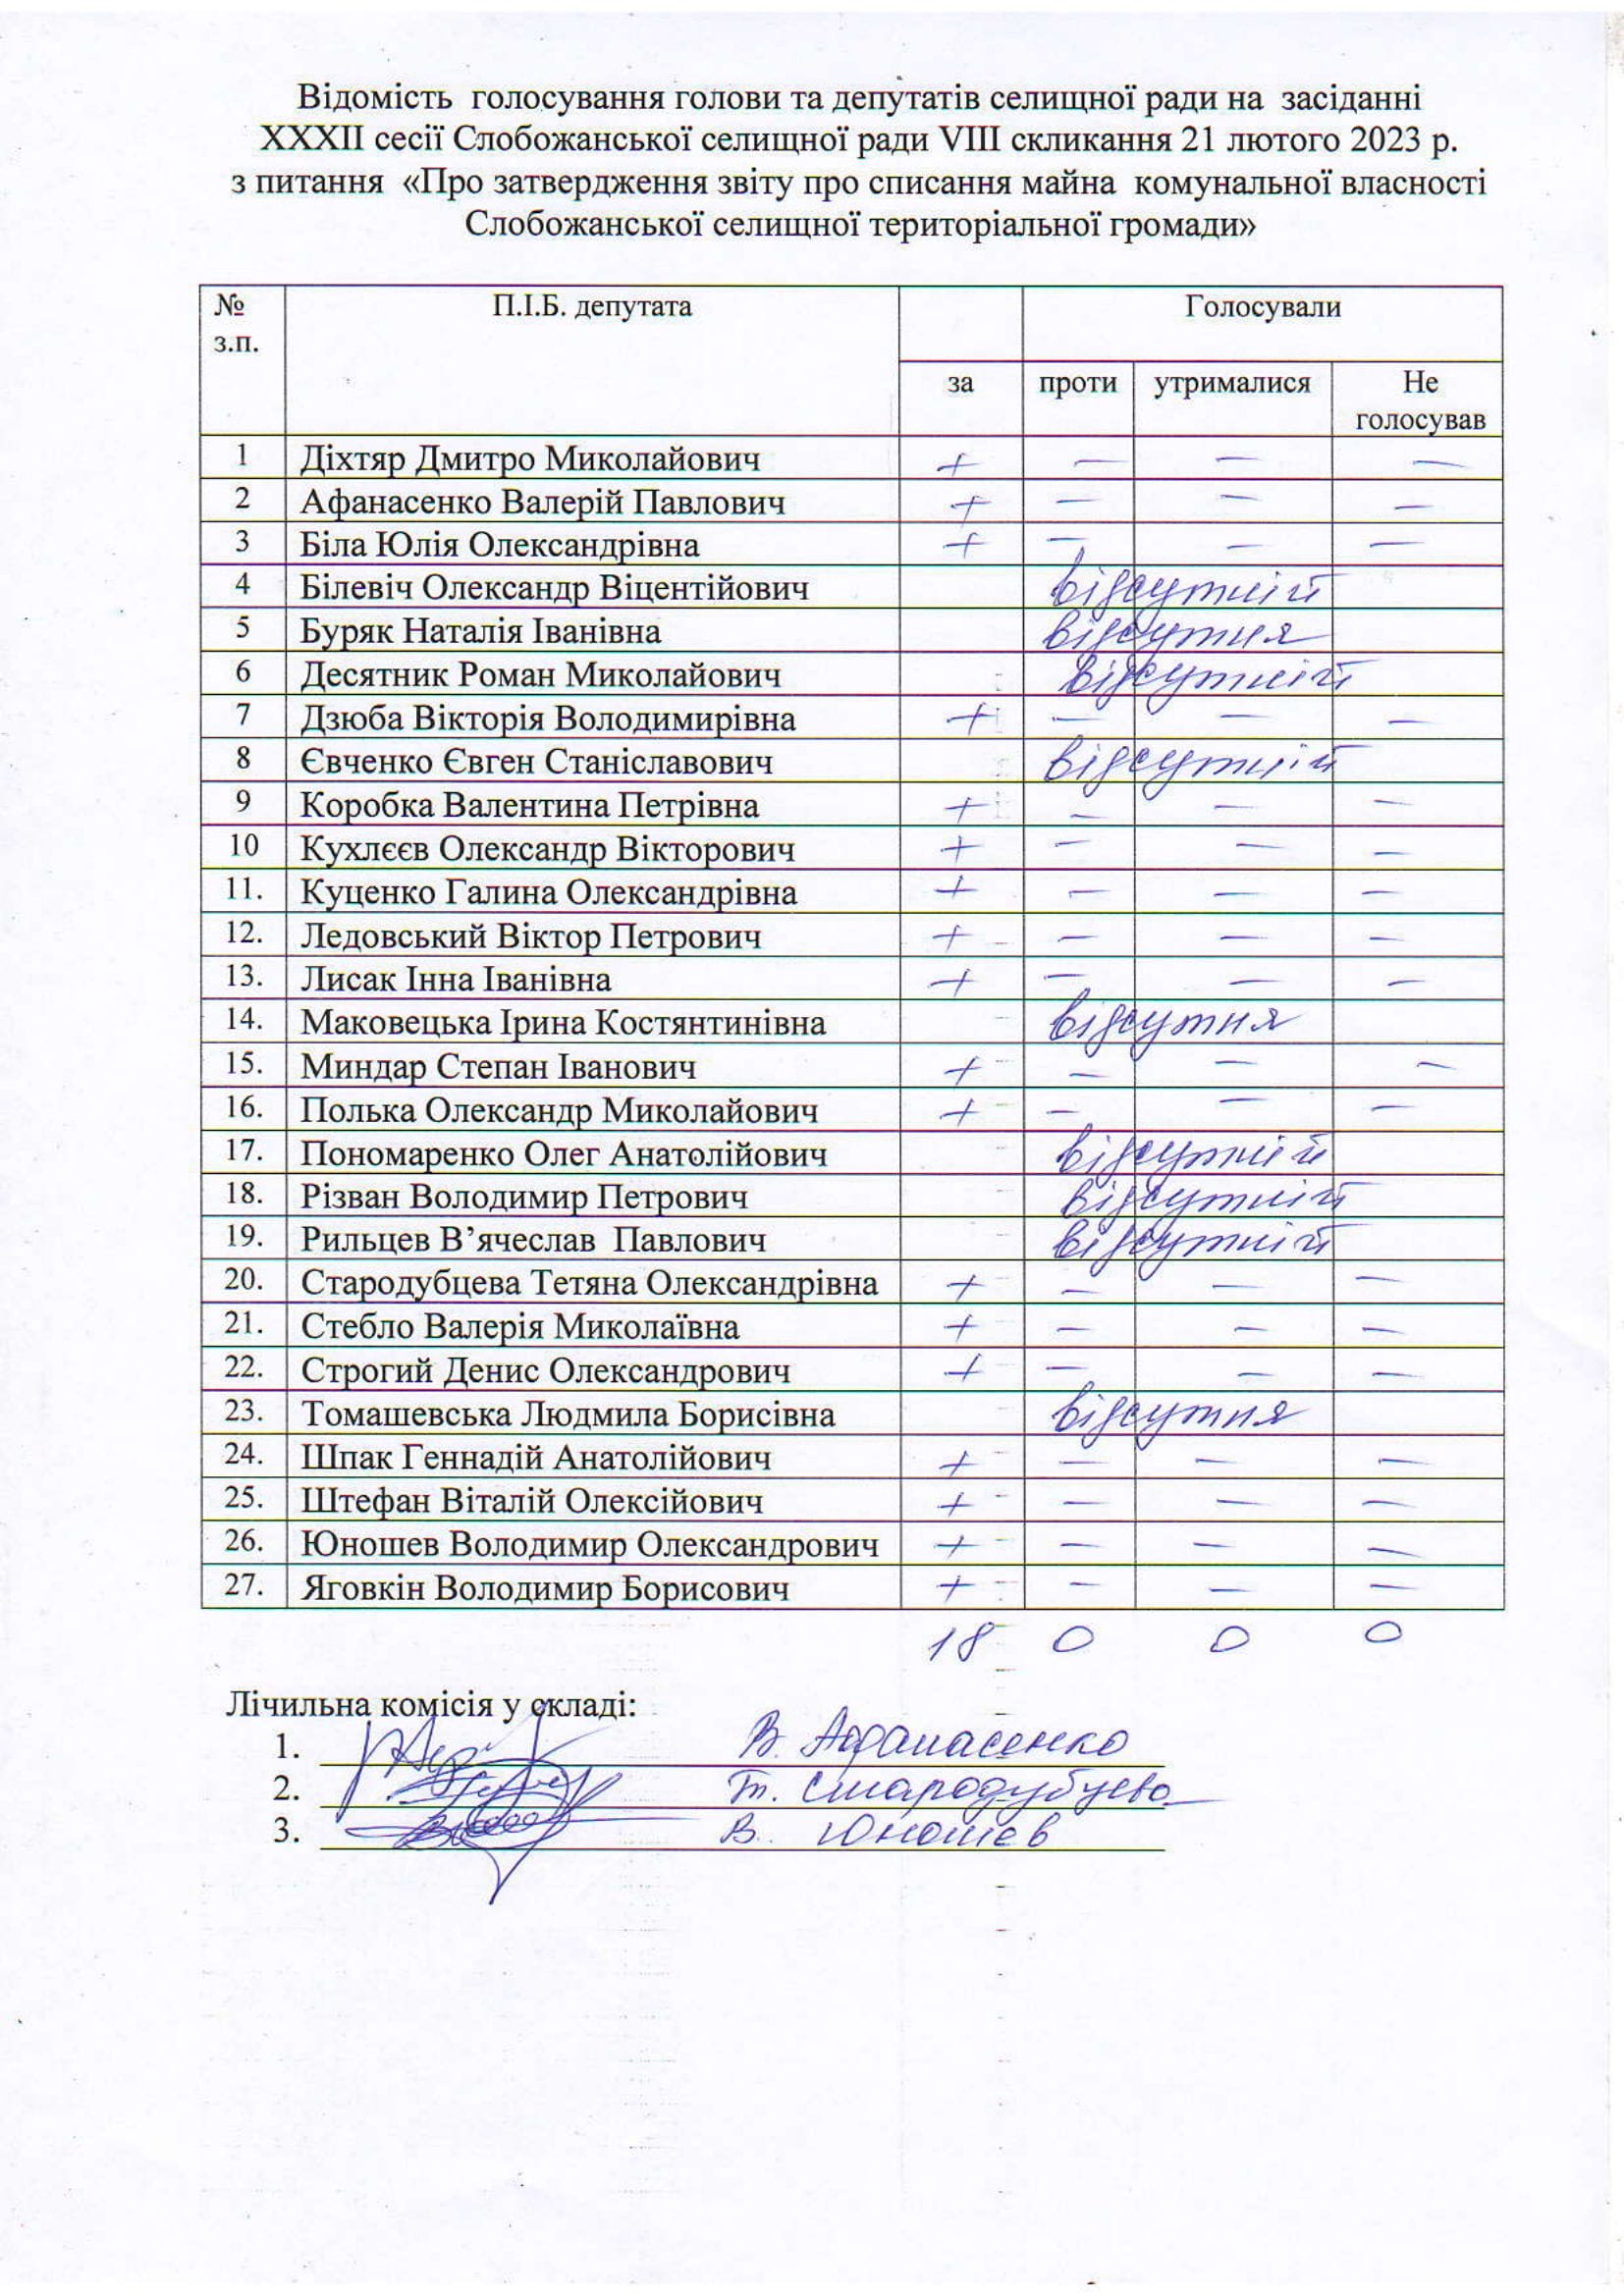 Відомість голосування голови та депутатів селищної ради на засіданні
XXXII сесії Слобожанської селищної ради VIII скликання 21 лютого 2023 р.
з питання «Про затвердження звіту про списання майна комунальної власності
Слобожанської селищної територіальної громади»
№ з.п. П.І.Б. депутата Голосували
за проти утрималися Не голосував
1 Діхтяр Дмитро Миколайович + — — —
2 Афанасенко Валерій Павлович + — — —
3 Біла Юлія Олександрівна + — — —
4 Білевіч Олександр Віцентійович відсутній
5 Буряк Наталія Іванівна відсутня
6 Десятник Роман Миколайович відсутній
7 Дзюба Вікторія Володимирівна + — — —
8 Євченко Євген Станіславович відсутній
9 Коробка Валентина Петрівна + — — —
10 Кухлєєв Олександр Вікторович + — — —
11. Куценко Галина Олександрівна + — — —
12. Ледовський Віктор Петрович + — — —
13. Лисак Інна Іванівна + — — —
14. Маковецька Ірина Костянтинівна відсутня
15. Миндар Степан Іванович + — — —
16. Полька Олександр Миколайович + — — —
17. Пономаренко Олег Анатолійович відсутній
18. Різван Володимир Петрович відсутній
19. Рильцев В’ячеслав Павлович відсутній
20. Стародубцева Тетяна Олександрівна + — — —
21. Стебло Валерія Миколаївна + — — —
22. Строгий Денис Олександрович + — — —
23. Томашевська Людмила Борисівна відсутня
24. Шпак Геннадій Анатолійович + — — —
25. Штефан Віталій Олексійович + — — —
26. Юношев Володимир Олександрович + — — —
27. Яговкін Володимир Борисович + — — —
18 0 0 0
Лічильна комісія у складі:
1. В. Афанасенко
2. Т. Стародубцева
3. В. Юношев